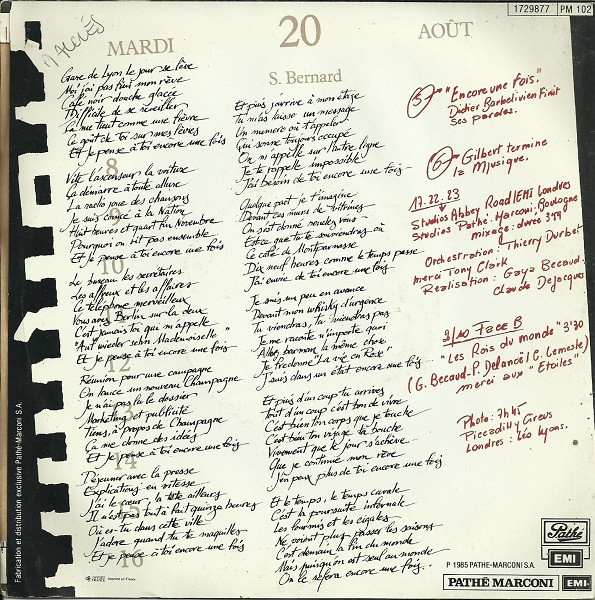 1729877 PM 102
MARDI 20 AOÛT
S. Bernard
Gare de Lyon le jour se lève
Moi j'ai pas fini mon rêve
Café noir douche glacée
Difficile de se réveiller
Ça me tient comme une fièvre
Ce goût de toi sur mes lèvres
Et je pense à toi encore une fois
8
Vite l'ascenseur la voiture
Ça démarre à toute allure
La radio joue des chansons
Je suis coincé à la Nation
Huit heures et quart fin Novembre
Pourquoi on vit pas ensemble
Et je pense à toi encore une fois
10
Le bureau les secrétaires
Les affreux et les affaires
Le téléphone merveilleux
Vous avez Berlin sur la deux
C'est jamais toi qui m'appelle
"Auf wieder sehn Mademoiselle"
Et je pense à toi encore une fois
12
Réunion pour une campagne
On lance un nouveau Champagne
Je n'ai pas lu le dossier
Marketing et publicité
Tiens, à propos de Champagne
Ça me donne des idées
Et je pense à toi encore une fois
14
Déjeuner avec la presse
Explications en vitesse
J'ai le cœur, la tête ailleurs
Il n'est pas tout à fait quinze heures
Où es-tu dans cette ville
J'adore quand tu te maquilles
Et je pense à toi encore une fois
16
Et puis j'arrive à mon étage
Tu m'as laissé un message
Un numéro où t'appeler
Qui sonne toujours occupé
On m'appelle sur l'autre ligne
Je te rappelle impossible
J'ai besoin de toi encore une fois
Quelque part je t'imagine
Devant ces murs de vitrines
On s'est donné rendez-vous
Est-ce que tu te souviendras où
Ce café de Montparnasse
Dix neuf heures comme le temps passe
J'ai envie de toi encore une fois
Je suis un peu en avance
Devant mon whisky d'urgence
Tu viendras, tu viendras pas
Je me raconte n'importe quoi
Allez barman la même chose
Je fredonne "La vie en Rose"
J'suis dans un état encore une fois
Et puis d'un coup tu arrives
Tout d'un coup c'est bon de vivre
C'est bien ton corps que je touche
C'est bien ton visage ta bouche
Vivement que le jour s'achève
Que je continue mon rêve
J'en peux plus de toi encore une fois
Et le temps, le temps cavale
C'est la poursuite infernale
Les fourmis et les cigales
Ne voient plus passer les saisons
C'est demain la fin du monde
Mais puisqu'on est seul au monde
On le refera encore une fois..
5 "Encore une fois."
Didier Barbelivien Finit
Ses paroles.
6 Gilbert termine
la Musique.
17.22.23
Studios Abbey Road/EMI Londres
Studios Pathé. Marconi, Boulogne
mixage: durée 3'99
Orchestration: Thierry Durbet
merci Tony Clark
Realisation: Gaya Becaud.
Claude Dejacques
2/10 Face B
"Les Rois du monde" 3'30
(G. Becaud-P. Delanoë/G. Lemesle)
merci aux "Etoiles"
Photo: 7h45
Piccadilly Circus
Londres: Léo Lyons.
Fabrication et distribution exclusive Pathé-Marconi S.A.
Imprimé en France
P 1985 PATHE-MARCONI S.A.
PATHÉ MARCONI
Pathé
EMI
EMI